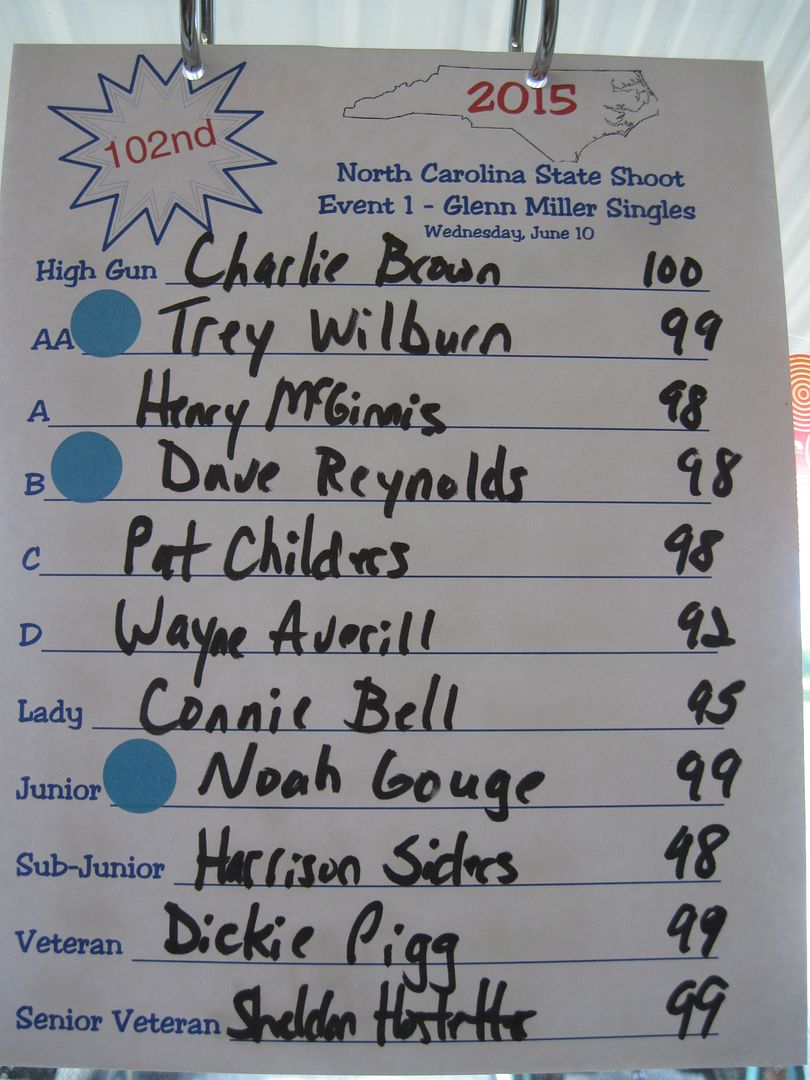 102nd
2015
North Carolina State Shoot
Event 1 - Glenn Miller Singles
Wednesday, June 10
High Gun Charlie Brown 100
AA Trey Wilburn 99
A Henry McGinnis 98
B Dave Reynolds 98
C Pat Childers 98
D Wayne Averill 92
Lady Connie Bell 95
Junior Noah Gouge 99
Sub-Junior Harrison Siders 98
Veteran Dickie Pigg 99
Senior Veteran Sheldon Hostetter 99